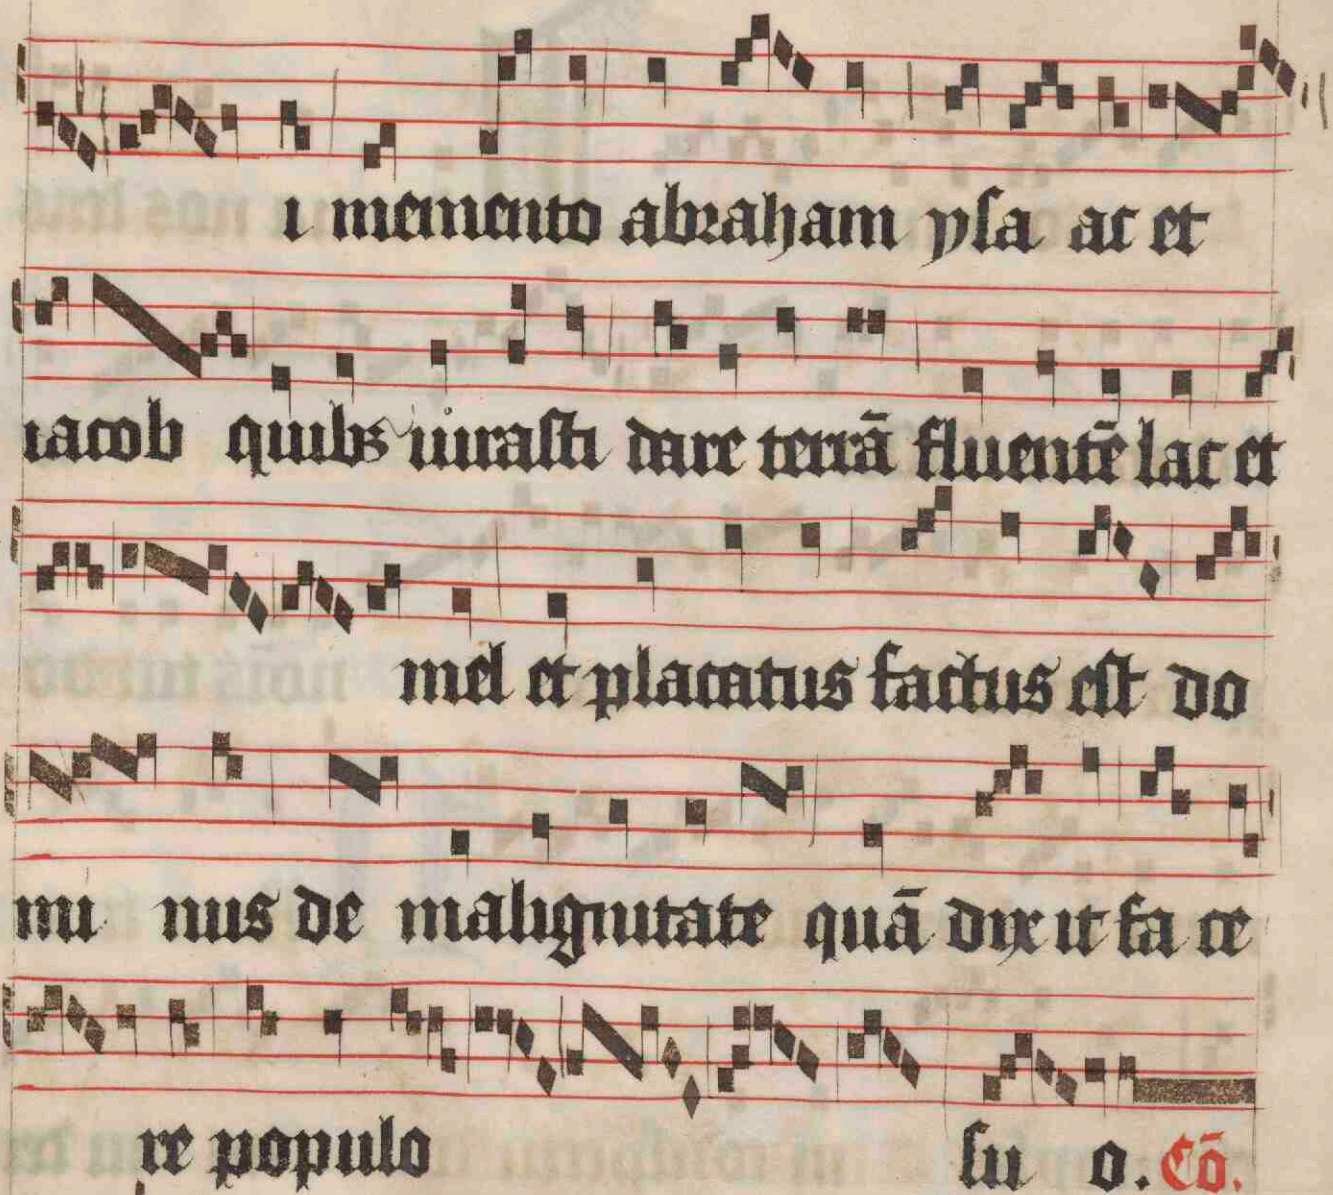 i memento abraham ysa ac et
iacob quibs iurasti dare terrā fluentē lac et
mel et placatus factus est do
mi nus de malignitate quā dix it fa ce
re populo su o. Cō.